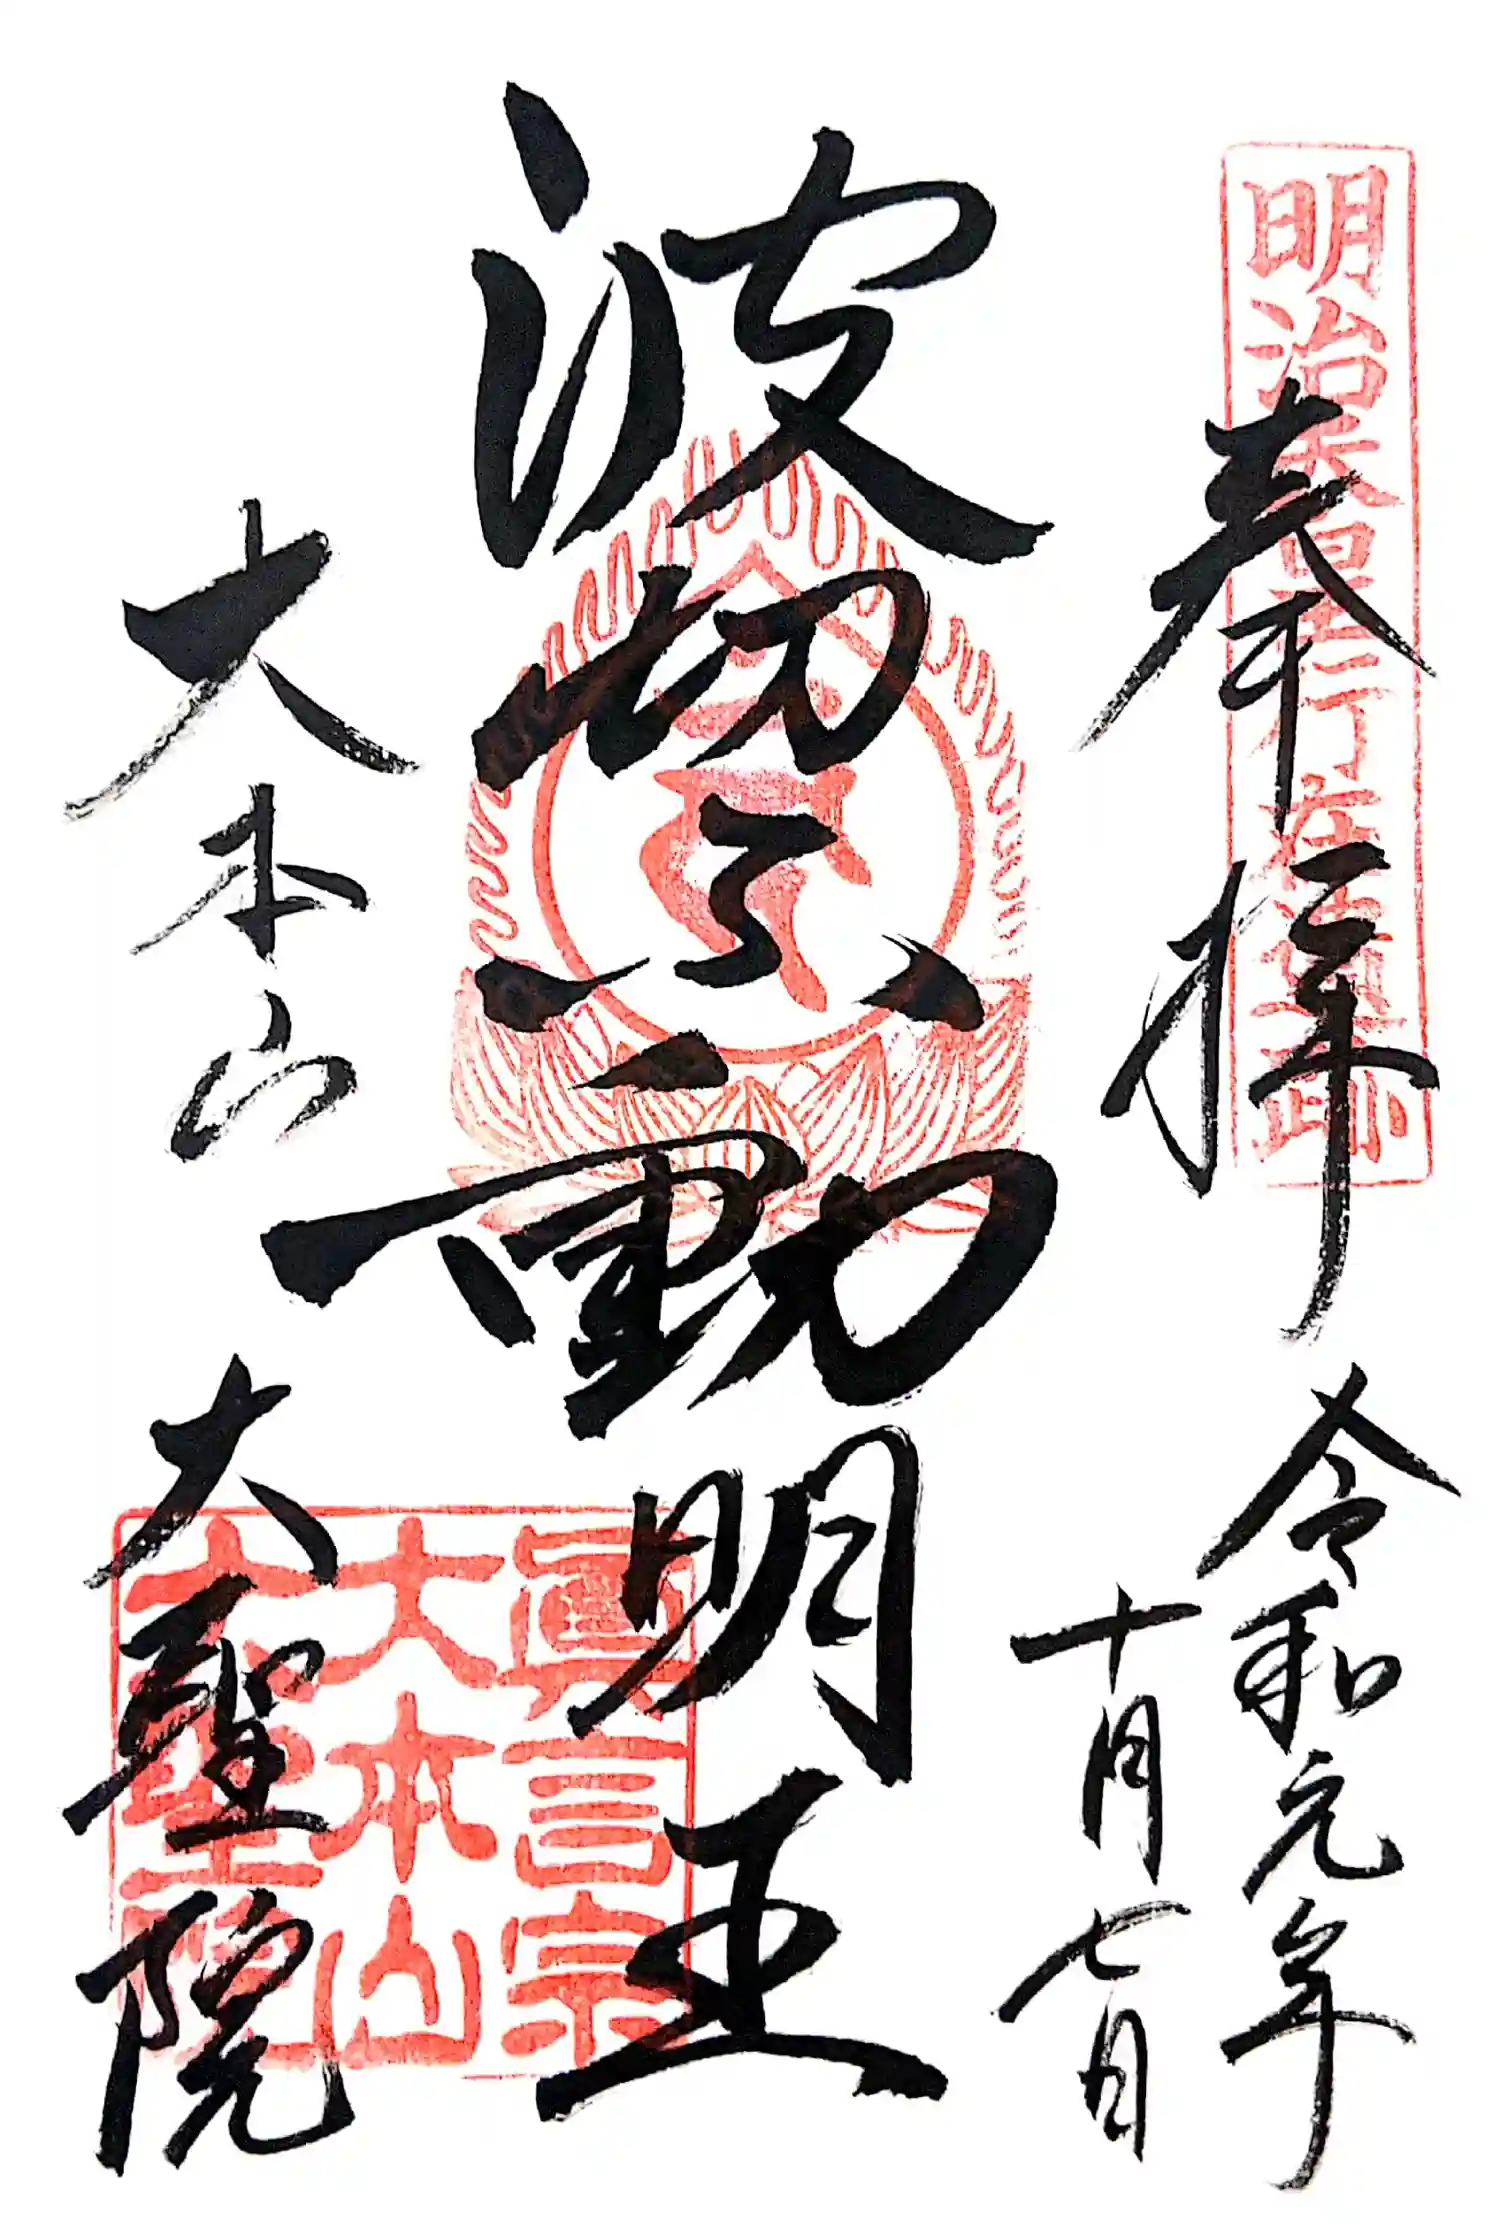 明治天皇行在所遺跡
奉拝
令和元年
十月七日
波切不動明王
大本山
大聖院
眞言宗
大本山
大聖院